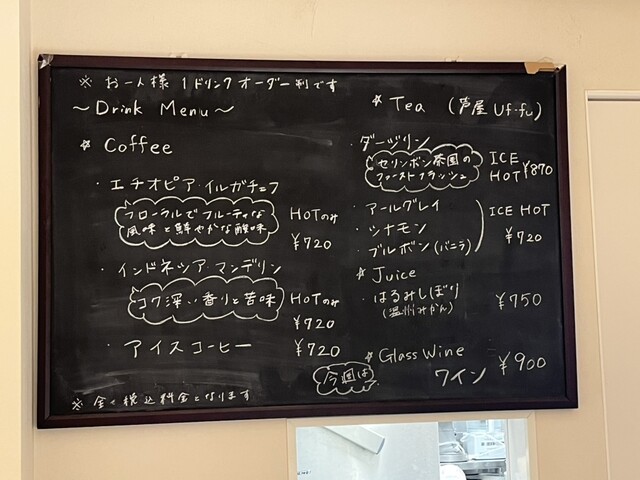 ※ お一人様 1ドリンクオーダー制です
～Drink Menu～
☆ Coffee
・エチオピア・イルガチェフ
フローラルでフルーティな
風味と鮮やかな酸味
HOTのみ
¥720
・インドネシア・マンデリン
コク深い香りと苦味
HOTのみ
¥720
・アイスコーヒー ¥720
※ 全て税込料金となります
☆ Tea (芦屋 Uf-fu)
・ダージリン
セリンボン茶園の
ファーストフラッシュ
ICE
HOT ¥870
・アールグレイ
・シナモン
・ブルボン(バニラ)
ICE HOT
¥720
☆ Juice
・はるみしぼり ¥750
(温州みかん)
☆ Glass Wine ¥900
今週は
ワイン